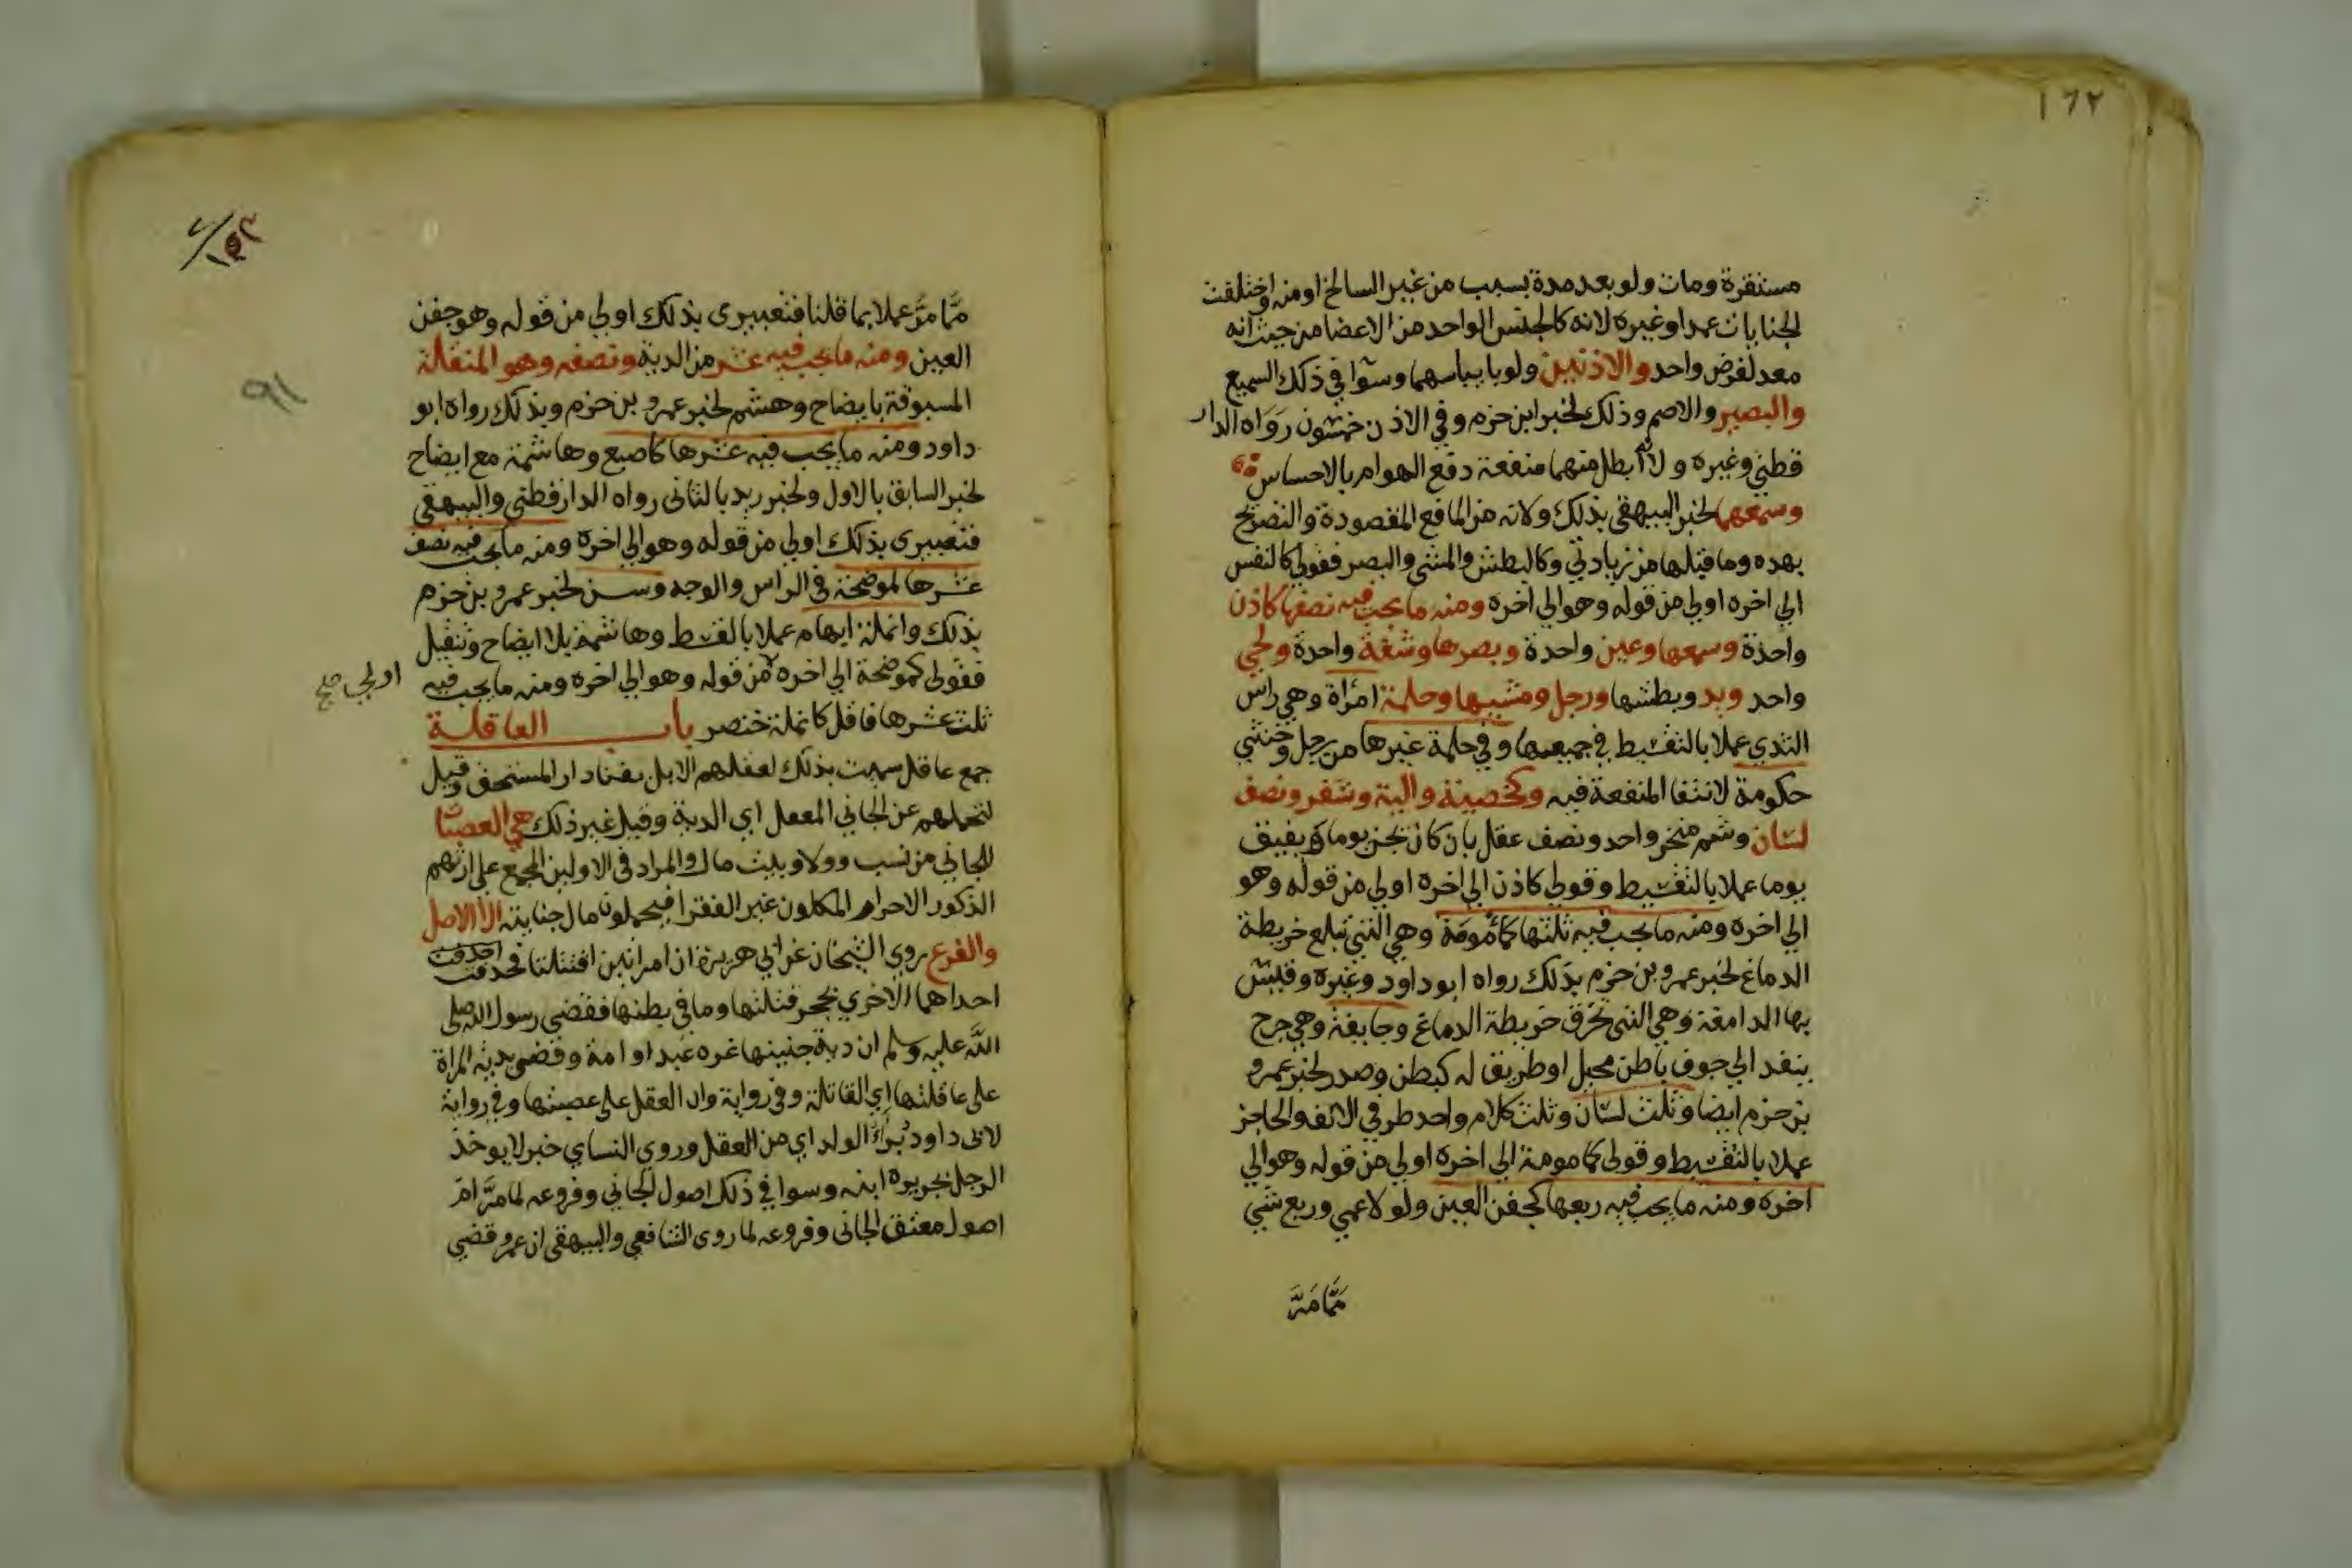 ١٦٢
مستقرة ومات ولو بعد مدة بسبب من غير السالخ او منه واختلفت
الجنايات عمدا وغيره لانه كالجنس الواحد من الاعضا من حيث انه
معد لغرض واحد والاذنين ولو بايباسهما وسوا في ذلك السميع
والبصير والاصم وذلك لخبر ابن حزم وفي الاذن خمسون رواه الدار
قطني وغيره ولانه ابطل منهما منفعة دفع الهوام بالاحساس
وسمعهما لخبر البيهقي بذلك ولانه من المنافع المقصودة والتصريح
بهده وما قبلها من زيادتي وكالبطش والمشي والبصر فقولي كالنفس
الي اخره اولي من قوله وهو الي اخره ومنه ما يجب فيه نصفها كاذن
واحدة وسمعها وعين واحدة وبصرها وشفة واحدة ولحي
واحد ويد وبطشها ورجل ومشيها وحلمة امرأة وهي راس
الثدي عملا بالتقسيط في جميعها وفي حلمة غيرها من رجل وخنثي
حكومة لانتفا المنفعة فيه وكخصية والية وشفر ونصف
لسان وشم منخر واحد ونصف عقل بان كان يجن يوما ويفيق
يوما عملا بالتقسيط وقولي كاذن الي اخره اولي من قوله وهو
الي اخره ومنه ما يجب فيه ثلثها كمأمومة وهي التي تبلغ خريطة
الدماغ لخبر عمرو بن حزم بذلك رواه ابو داود وغيره وقيس
بها الدامغة وهي التي تخرق خريطة الدماغ وجايفة وهي جرح
ينفد الي جوف باطن محيل او طريق له كبطن وصدر لخبر عمرو
بن حزم ايضا وثلث لسان وثلث كلام واحد طرفي الانف والحاجز
عملا بالتقسيط وقولي كمامومة الي اخره اولي من قوله وهو الي
اخره ومنه ما يجب فيه ربعها كجفن العين ولو لاعمي وربع شي
ممّا مرَّ
٩١
ممّا مرَّ عملا بما قلنا فتعبيري بذلك اولي من قوله وهو جفن
العين ومنه ما يجب فيه عشر من الدية ونصفه وهو المنقلة
المسبوقة بايضاح وهشم لخبر عمرو بن حزم وبذلك رواه ابو
داود ومنه ما يجب فيه عشرها كاصبع وهاشمة مع ايضاح
لخبر السابق بالاول ولخبر زيد بالثاني رواه الدارقطني والبيهقي
فتعبيري بذلك اولي من قوله وهو الي اخره ومنه ما يجب فيه نصف
عشرها لموضحة في الراس والوجه وسن لخبر عمرو بن حزم
بذلك وانملة ايهام عملا بالقسط وهاشمة بلا ايضاح وتنقيل
فقولي كموضحة الي اخره من قوله وهو الي اخره ومنه ما يجب فيه
اولي صح
ثلث عشرها فاقل كانملة خنصر باب العاقلة
جمع عاقل سميت بذلك لعقلهم الابل بفنا دار المستحق وقيل
لتحملهم عن الجاني المعقل اي الدية وقيل غير ذلك هي العصبات
للجاني من نسب وولا وبيت مال والمراد في الاولين المجمع علي ارثهم
الذكور الاحرار المكلون غير الفقرا فيحملون مال جنايته الا الاصل
والفرع روي الشيخان عن ابي هريرة ان امراتين اقتتلتا فحدفت
احداهما الاخري بحجر فقتلتها وما في بطنها فقضي رسول الله صلى
اللّه عليه وسلم ان دية جنينها غره عبد او امة وقضي بدية المراة
على عاقلتها اي القاتلة وفي رواية وان العقل على عصبتها وفي رواية
لابي داود بُرِّئ الولد اي من العقل وروي النساي خبر لا يوخذ
الرجل بجريرة ابنه وسوا في ذلك اصول الجاني وفروعه لما مرَّ ام
اصول معتق الجاني وفروعه لما روي الشافعي والبيهقي ان عمر قضي